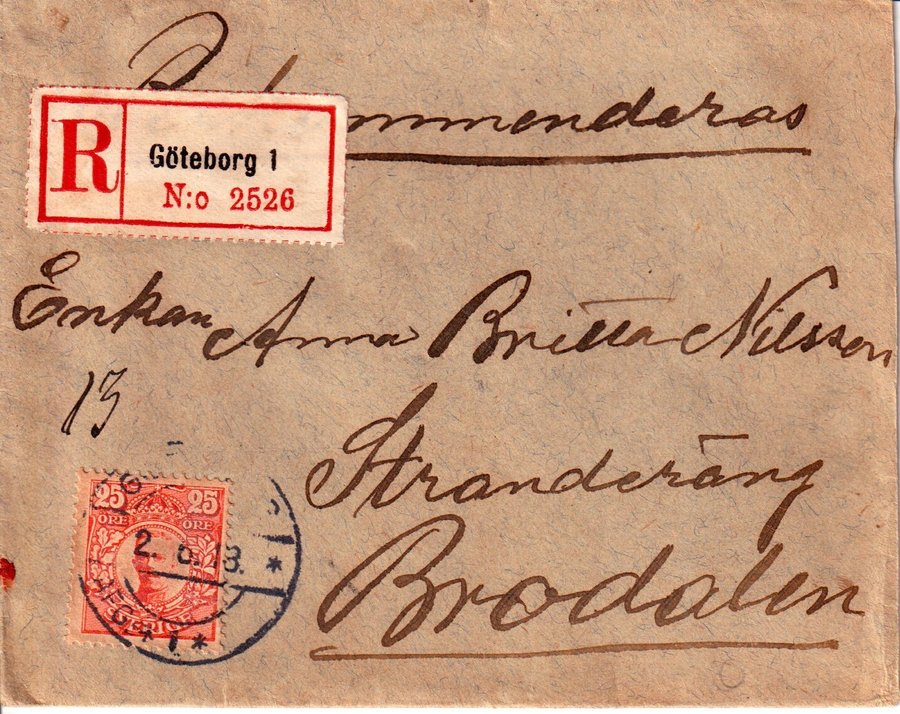 Rekommenderas
R
Göteborg 1
N:o 2526
Enkan Anna Britta Nilsson
13
Stranderäng
Brodalen
25 25
ÖRE ÖRE
2. 6.13.